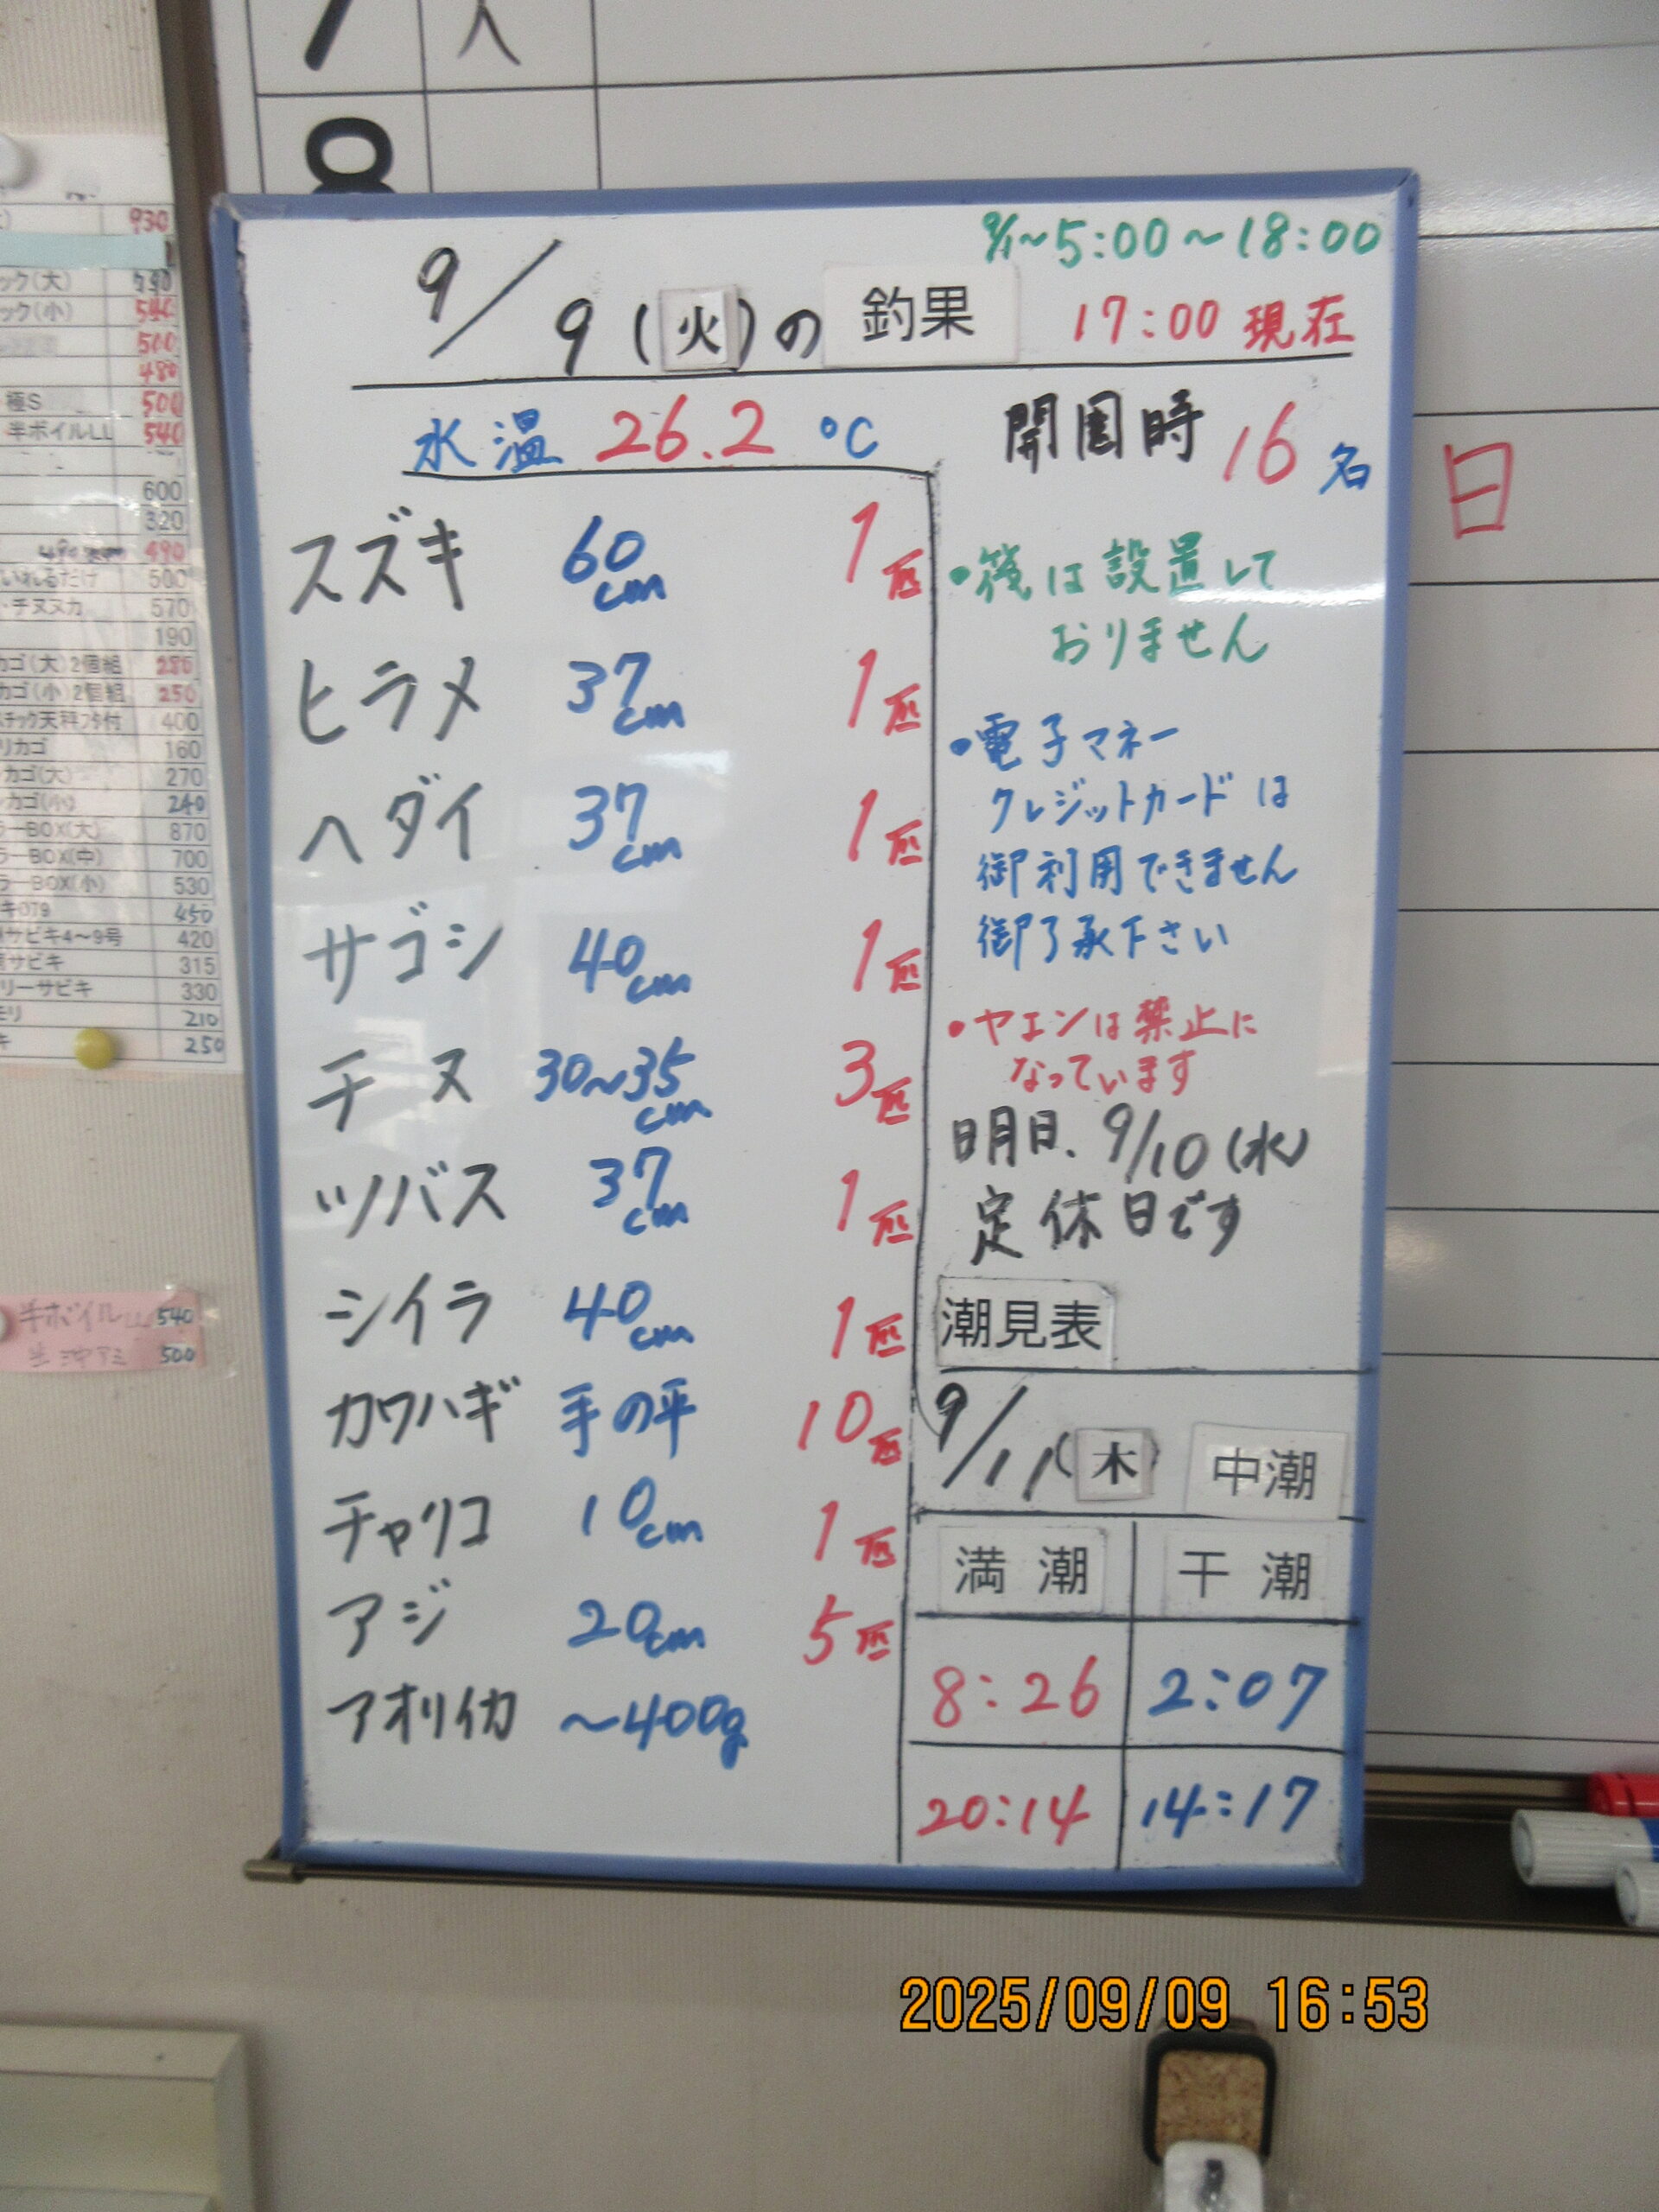 9/1~5:00~18:00
9/9(火)の釣果 17:00 現在
水温 26.2 ℃
開園時 16名
スズキ 60cm 1匹
ヒラメ 37cm 1匹
ヘダイ 37cm 1匹
サゴシ 40cm 1匹
チヌ 30~35cm 3匹
ツバス 37cm 1匹
シイラ 40cm 1匹
カワハギ 手の平 10匹
チャリコ 10cm 1匹
アジ 20cm 5匹
アオリイカ ~400g
・筏は設置して
おりません
・電子マネー
クレジットカードは
御利用できません
御了承下さい
・ヤエンは禁止に
なっています
明日、9/10(水)
定休日です
潮見表
9/11(木) 中潮
満潮 干潮
8:26 2:07
20:14 14:17
日
8
930
ック(大)
ック(小) 540
500
480
極S 500
半ボイルLL 540
600
320
490
いれるだけ 500
・チヌヌカ 570
190
カゴ(大)2個組 280
カゴ(小)2個組 250
400
リカゴ 160
カゴ(大) 270
カゴ(小) 240
ラーBOX(大) 870
ラーBOX(中) 700
ラーBOX(小) 530
キ079 450
サビキ4~9号 420
サビキ 315
リーサビキ 330
モリ 210
キ 250
半ボイルLL 540
生沖アミ 500
2025/09/09 16:53